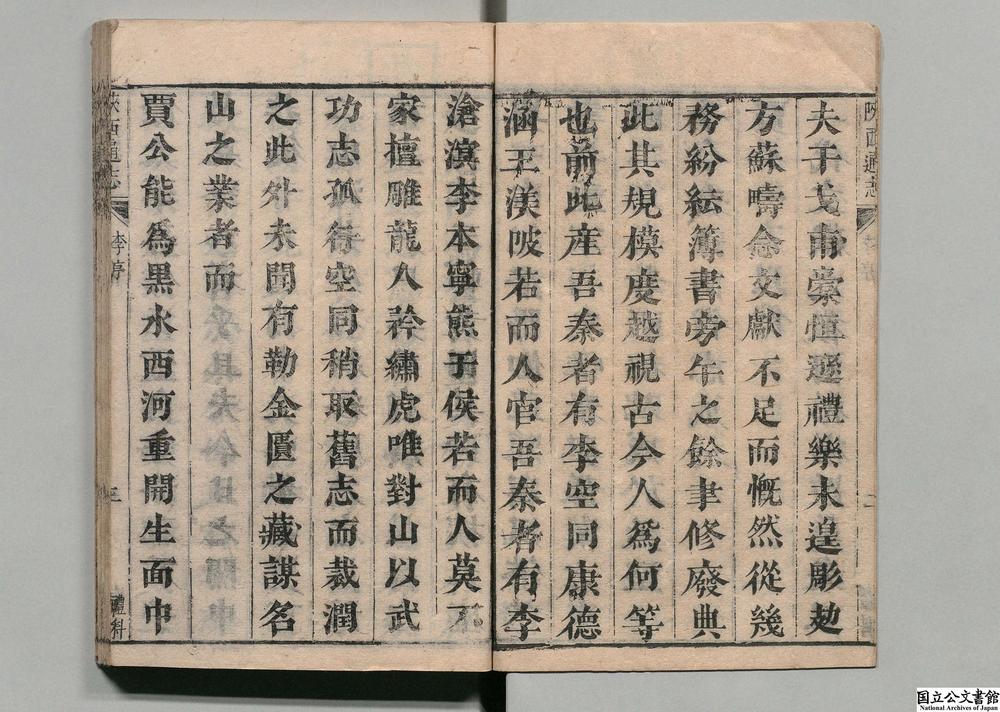 夫干戈甫橐恒遜禮樂未遑彫勊
方蘇疇念文獻不足而慨然從幾
務紛紜簿書旁午之餘聿修廢典
此其規模度越視古今人為何等
也前此産吾秦者有李空同康德
涵王渼陂若而人官吾秦者有李
滄溟李本寧熊于侯若而人莫不
家擅雕龍人矜繡虎唯對山以武
功志孤行空同稍取舊志而裁潤
之此外未聞有勒金匱之藏謀名
山之業者而
賈公能為黒水西河重開生面中
陜西通志
李序
三
禮科
国立公文書館
National Archives of Japan